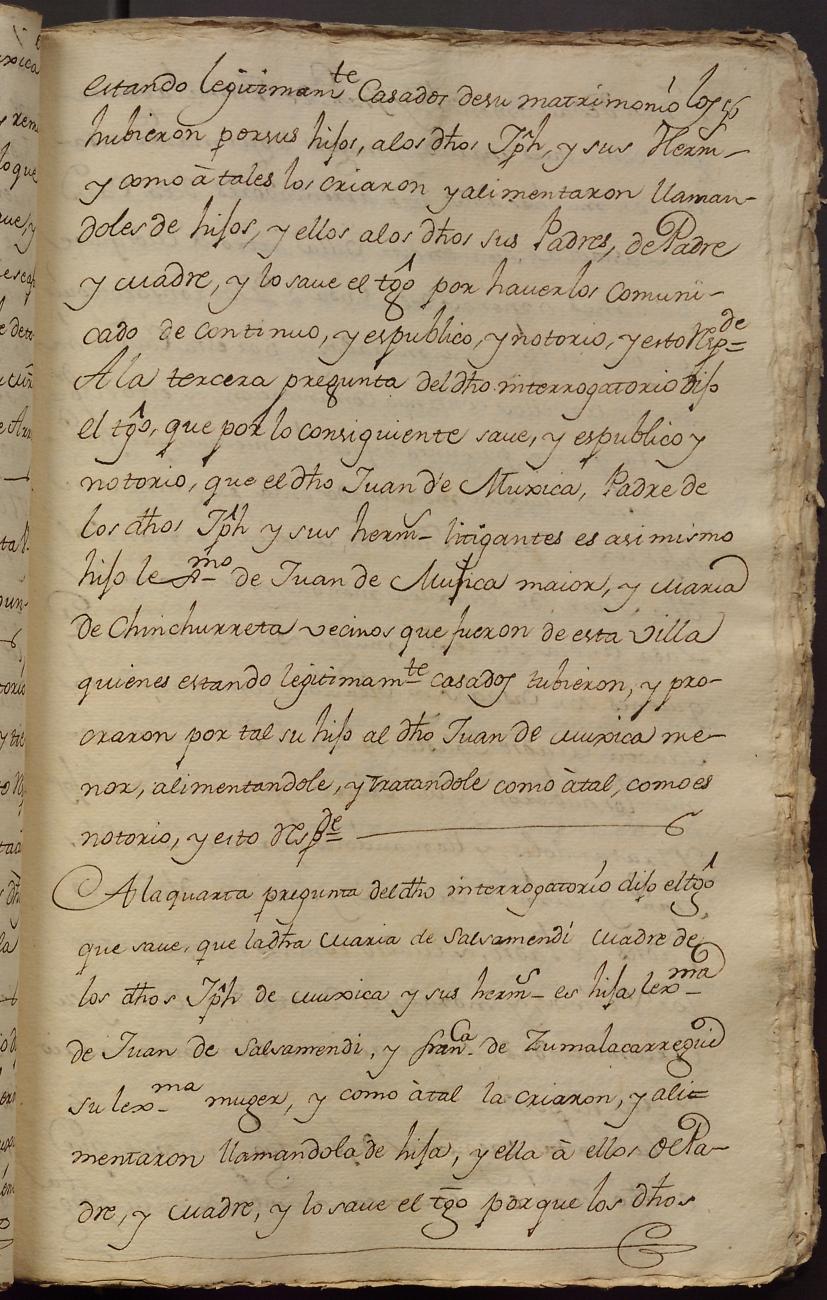 estando legitimam^te Casados desu matrimonio los
hubieron por sus hijos, alos dhos Jph, y sus Herm^s
y como à tales los criaron y alimentaron llaman-
doles de hijos, y ellos alos dhos sus Padres, de Padre
y Madre, y lo saue el tgo por hauerlos comuni-
cado de continuo, y es publico, y notorio, y esto resp^de
A la tercera pregunta del dho interrogatorio dijo
el tgo, que por lo consiguiente saue, y es publico y
notorio, que el dho Juan de Muxica, Padre de
los dhos Jph y sus herm^s litigantes es asi mismo
hijo lex^mo de Juan de Muxica maior, y Maria
de Chinchurreta vecinos que fueron de esta Villa
quienes estando legitimam^te casados tubieron, y pro-
craron por tal su hijo al dho Juan de Muxica me-
nor, alimentandole, y tratandole como àtal, como es
notorio, y esto resp^de
A la quarta pregunta del dho interrogatorio dijo el tgo
que saue, que la dha Maria de Salsamendi Madre de
los dhos Jph de Muxica y sus herm^s es hija lex^ma
de Juan de Salsamendi, y fran^ca de Zumalacarregui
su lex^ma muger, y como àtal la criaron, y ali-
mentaron llamandola de hija, y ella à ellos de Pa-
dre, y Madre, y lo saue el tgo porque los dhos